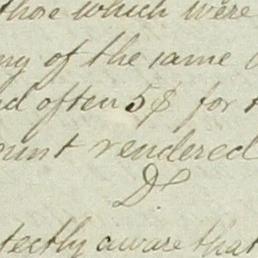 those which were
ny of the same
d often 5$ for
ount rendered
Dr
fectly aware that